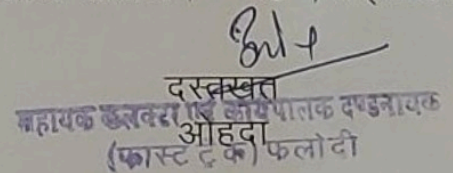 दस्तखत
सहायक कलक्टर एवं कार्यपालक दण्डनायक
ओहदा
(फास्ट ट्रेक) फलोदी